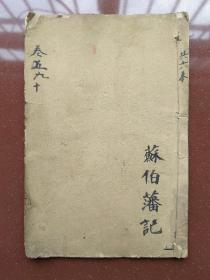 共六本
卷五六十
蘇伯藩記